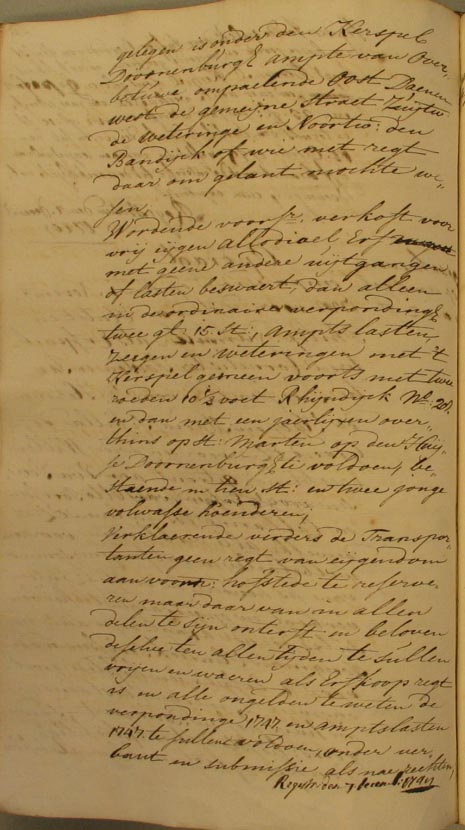 gelegen is onder den Kerspel
Doornenburg E ampte van Over
betuwe, ompaelende Oost Daenen
west de gemeijne straet Zuijtw
de weteringe en Noortw: den
Bandijck of wie met regt
daar om gelant mochte we
sen,
Wordende voorsr. verkoft voor
vrij eijgen allodiael Erf
met geene andere uijtgangen
of lasten beswaert, dan alleen
in de ordinaise verponding E
twee gl 15 st:, ampts lasten,
Zeegen en weteringen met 't
Kerspel gemeen voorts met twee
roeden 10½ voet Rhijndijck No: 201.
en dan met een jaerlixen over
thins op st: Marten op den Huij
se Doornenburg E te voldoen, be
staende in tien st: en twee jonge
volwasse hoenderen,
Verklaerende verders de Transpor
tanten geen regt van eijgendom
aan voorsr: hofstede te reserve
ren maar daar van in allen
delen te sijn onterft en beloven
deselve ten allen tijden te sullen
vrijen en waeren als Erfkoop regt
is en alle ongelden te weten de
verpondinge 1747 en amptslasten
1747 te sullen voldoen, onder ver
bant en submissie als nae rechten,
Registr: den 7 decemb: 1747